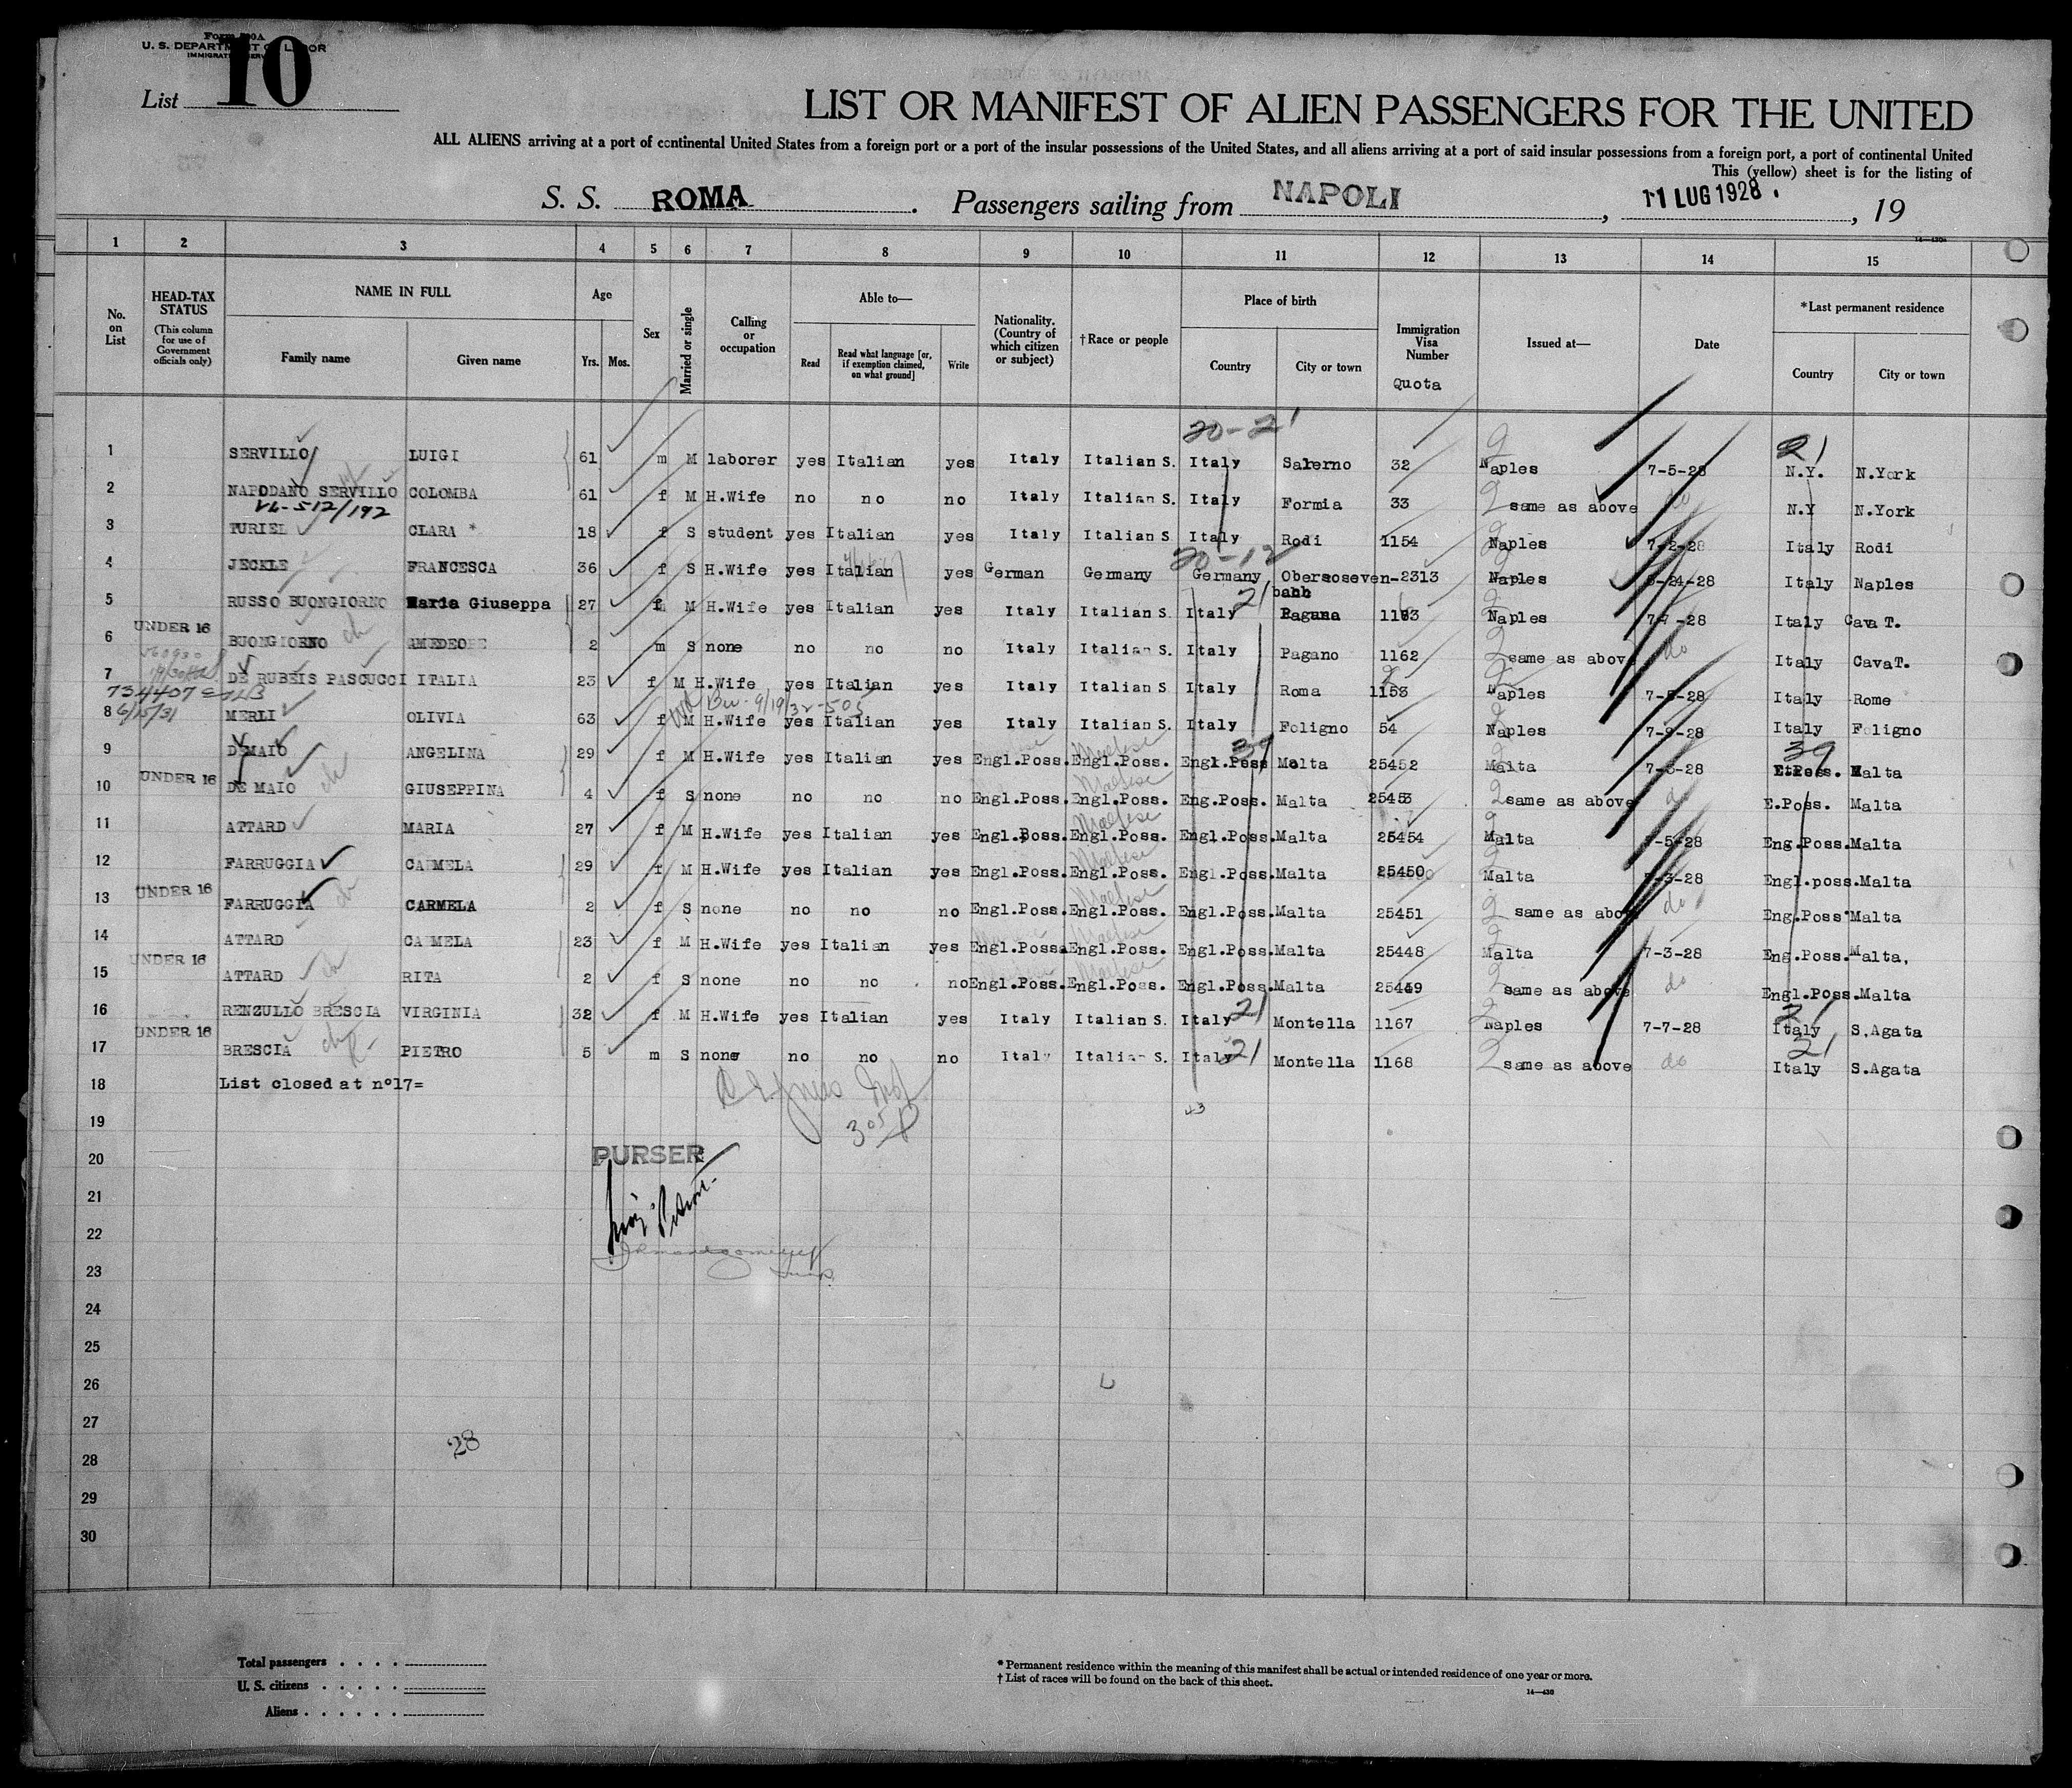 Form 500A
U. S. DEPARTMENT OF LABOR
IMMIGRATION SERVICE
List 10
LIST OR MANIFEST OF ALIEN PASSENGERS FOR THE UNITED
ALL ALIENS arriving at a port of continental United States from a foreign port or a port of the insular possessions of the United States, and all aliens arriving at a port of said insular possessions from a foreign port, a port of continental United
This (yellow) sheet is for the listing of
S. S. ROMA. Passengers sailing from NAPOLI, 11 LUG 1928, 19
1 2 3 4 5 6 7 8 9 10 11 12 13 14 15
No. on List
HEAD-TAX STATUS (This column for use of Government officials only)
NAME IN FULL Family name Given name
Age Yrs. Mos.
Sex
Married or single
Calling or occupation
Able to— Read Read what language [or, if exemption claimed, on what ground] Write
Nationality. (Country of which citizen or subject)
†Race or people
Place of birth Country City or town
Immigration Visa Number Quota
Issued at—
Date
*Last permanent residence Country City or town
20-21 21
1 SERVILLO LUIGI 61 m M laborer yes Italian yes Italy Italian S. Italy Salerno 32 Naples 7-5-28 N.Y. N.York
2 NAPODANO SERVILLO COLOMBA 61 f M H.Wife no no no Italy Italian S. Italy Formia 33 same as above do N.Y N.York
VL-512/192
3 TURIEL CLARA * 18 f S student yes Italian yes Italy Italian S. Italy Rodi 1154 Naples 7-2-28 Italy Rodi
20-12
4 JECKLE FRANCESCA 36 f S H.Wife yes Italian yes German Germany Germany 2313 Naples -28 Italy Naples
5 RUSSO BUONGIORNO Maria Giuseppa 27 f M H.Wife yes Italian yes Italy Italian S. Italy 21 Naples 7-7-28 Italy Cava T.
UNDER 16
6 BUONGIORNO 2 m S none no no no Italy Italian S. Italy Pagano 1162 same as above do Italy CavaT.
7 DE RUBEIS PASCUCCI ITALIA 23 f M H.Wife yes Italian yes Italy Italian S. Italy Roma 1153 Naples Italy Rome
734407
6/15/31 9/19/32-505
8 MERLI OLIVIA 63 f M H.Wife yes Italian yes Italy Italian S. Italy Foligno 54 Naples 7-9-28 Italy Foligno
39 39
9 DI MAIO ANGELINA 29 f M H.Wife yes Italian yes Engl.Poss. Engl.Poss. Maltese Engl.Poss Malta 25452 Malta Malta
UNDER 16
10 DE MAIO GIUSEPPINA 4 f S none no no no Engl.Poss. Engl.Poss. Maltese Eng.Poss. Malta 25453 same as above E.Poss. Malta
11 ATTARD MARIA 27 f M H.Wife yes Italian yes Engl.Poss. Engl.Poss. Maltese Engl.Poss. Malta 25454 Malta -5-28 Eng.Poss. Malta
12 FARRUGGIA CARMELA 29 f M H.Wife yes Italian yes Engl.Poss. Engl.Poss. Maltese Engl.Poss. Malta 25450 Malta -3-28 Engl.poss. Malta
UNDER 16
13 FARRUGGIA CARMELA 2 f S none no no no Engl.Poss. Engl.Poss. Maltese Engl.Poss. Malta 25451 same as above do Eng.Poss. Malta
14 ATTARD CARMELA 23 f M H.Wife yes Italian yes Engl.Poss. Engl.Poss. Maltese Engl.Poss. Malta 25448 Malta 7-3-28 Eng.Poss. Malta,
UNDER 16
15 ATTARD RITA 2 f S none no no no Engl.Poss. Engl.Poss. Maltese Engl.Poss. Malta 25449 same as above do Engl.Poss. Malta
16 RENZULLO BRESCIA VIRGINIA 32 f M H.Wife yes Italian yes Italy Italian S. Italy 21 Montella 1167 Naples 7-7-28 Italy 21 S.Agata
UNDER 16
17 BRESCIA PIETRO 5 m S none no no no Italy Italian S. Italy 21 Montella 1168 same as above do Italy 21 S.Agata
18 List closed at n°17=
19
20 PURSER
21
22
23
24
25
26
27
28 28
29
30
Total passengers . . . .
U. S. citizens . . . . .
Aliens . . . . . .
* Permanent residence within the meaning of this manifest shall be actual or intended residence of one year or more.
† List of races will be found on the back of this sheet.
14—430